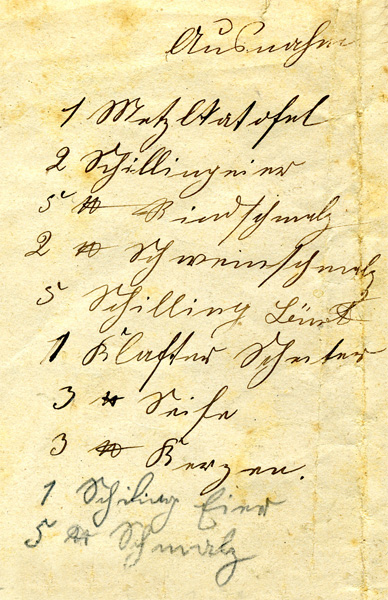 Ausnahm
1 Metzl Katofel
2 Schillingeier
5 ℔ Rindschmalz
2 ℔ Schweinschmalz
5 Schilling
1 Klafter Scheiter
3 ℔ Seife
3 ℔ Kerzen.
1 Schiling Eier
5 ℔ Schmalz